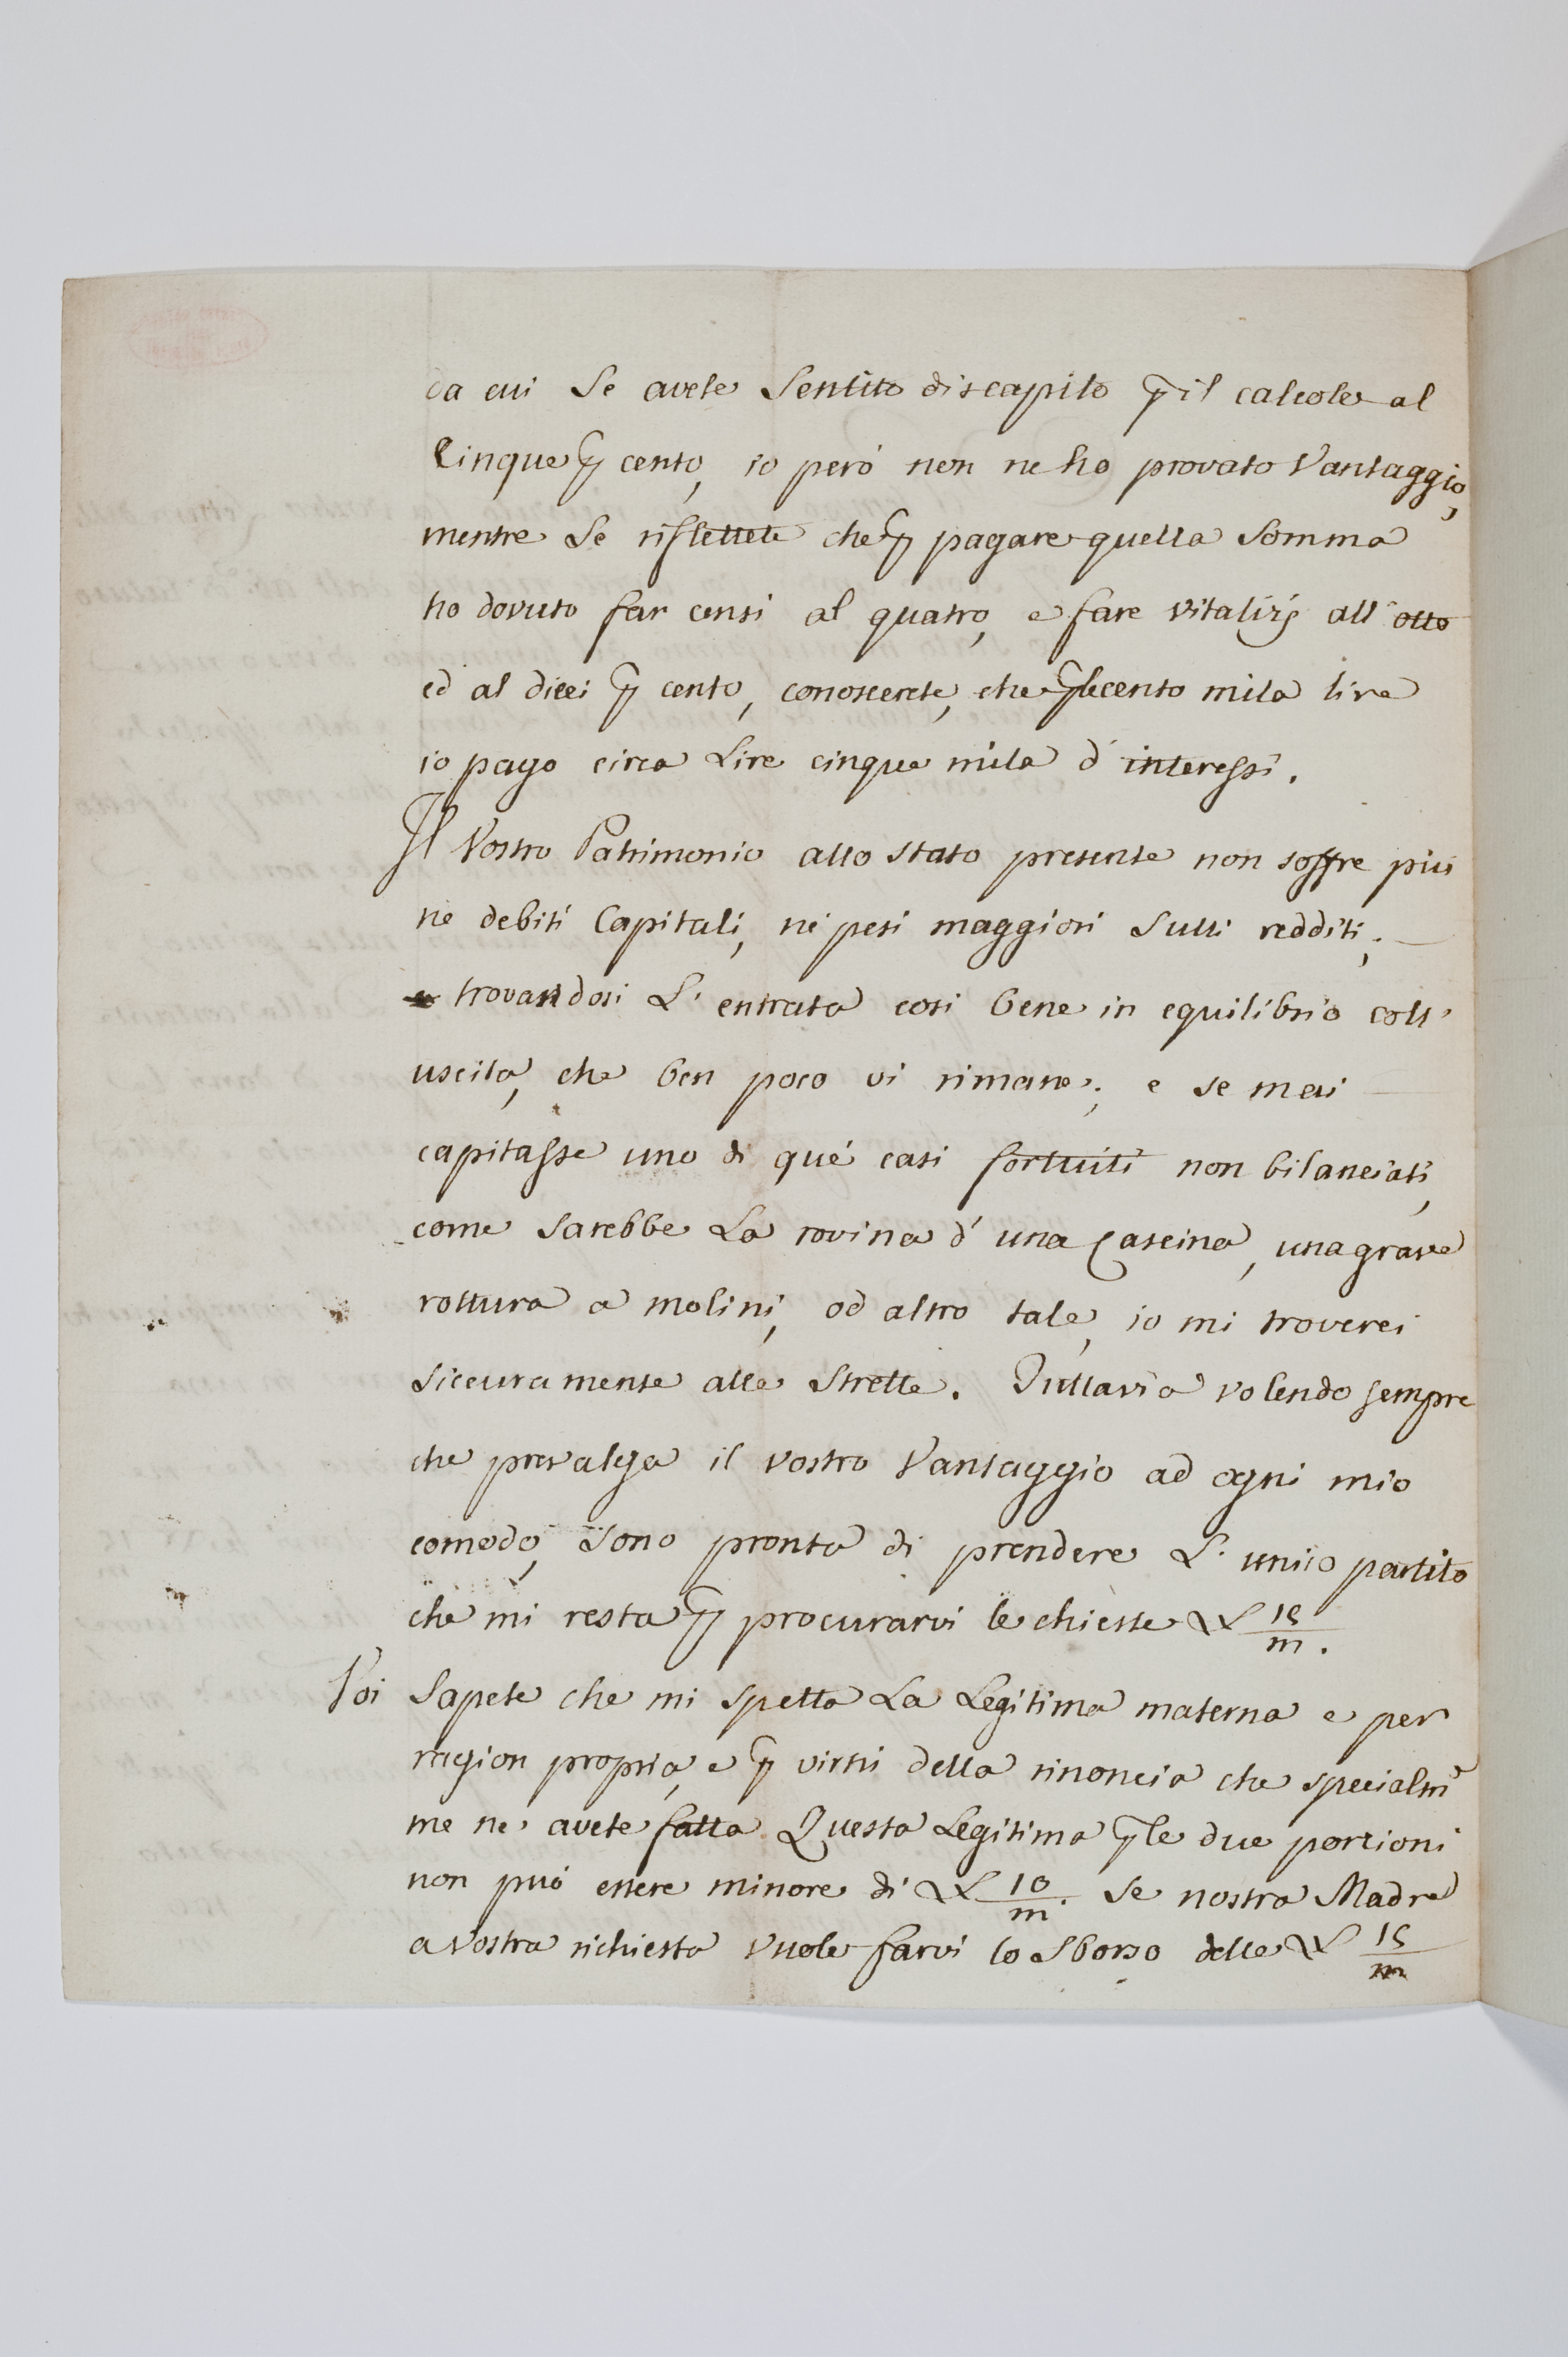 da cui Se avete Sentito discapito ꝑ il calcolo al
Cinque ꝑ cento, io però non ne ho provato Vantaggio,
mentre Se riflettete che ꝑ pagare quella Somma
ho dovuto far censi al quatro, e fare vitalizj all'otto
ed al dieci ꝑ cento, conoscerete, che ꝑ le cento mila lire
io pago circa Lire cinque mila d'interessi.
Il Vostro Patrimonio allo stato presente non soffre più
ne debiti Capitali, nè pesi maggiori Sulli redditi;
trovandosi L'entrata così bene in equilibrio coll'
uscita, che ben poco vi rimane; e se mai
capitasse uno di què casi fortuiti non bilanciati,
come Sarebbe La rovina d'una Cascina, una grave
rottura a molini, od altro tale, io mi troverei
Siccuramente alle Strette. Tuttavia volendo sempre
che prevalga il vostro Vantaggio ad ogni mio
comodo, Sono pronta di prendere L'unico partito
che mi resta ꝑ procurarvi le chieste £ 15/m.
Voi Sapete che mi spetta La Legitima materna e per
ragion propria, e ꝑ virtù della rinoncia che specialm̃
me ne avete fatta. Questa Legitima ꝑ le due portioni
non può essere minore di £ 10/m. Se nostra Madre
a vostra richiesta vuole farvi lo Sborso delle £ 15/m